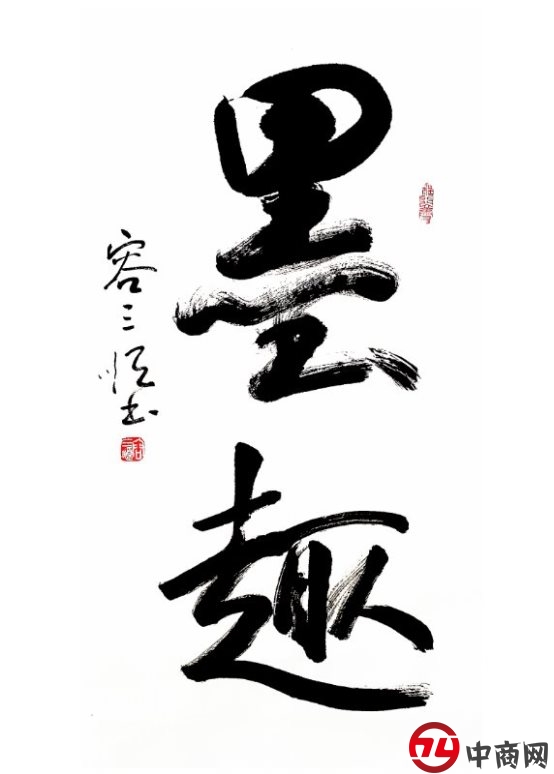 墨趣
容三书
中商网